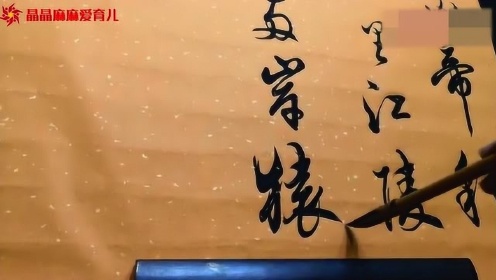 晶晶麻麻爱育儿
帝
里江陵
两岸猿